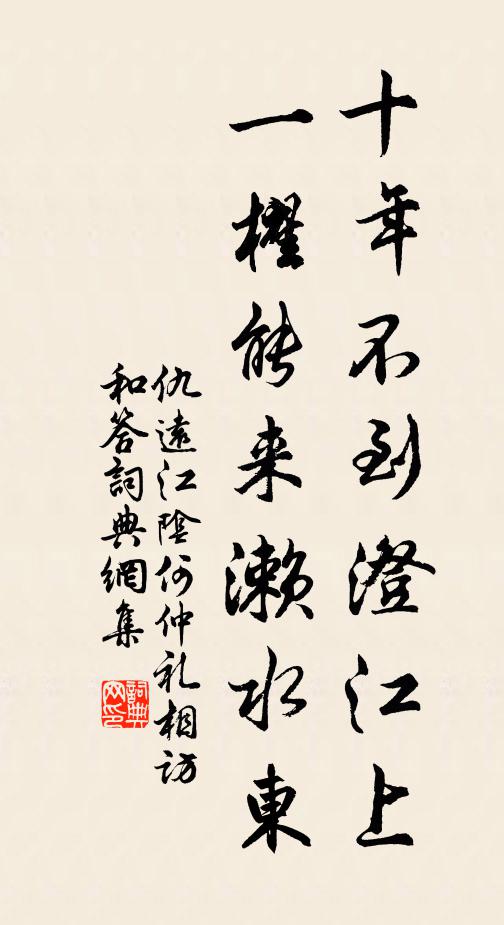 十年不到澄江上
一櫂能来濑水東
仇遠江陰何仲礼相访
和答詞典網集
詞典网印